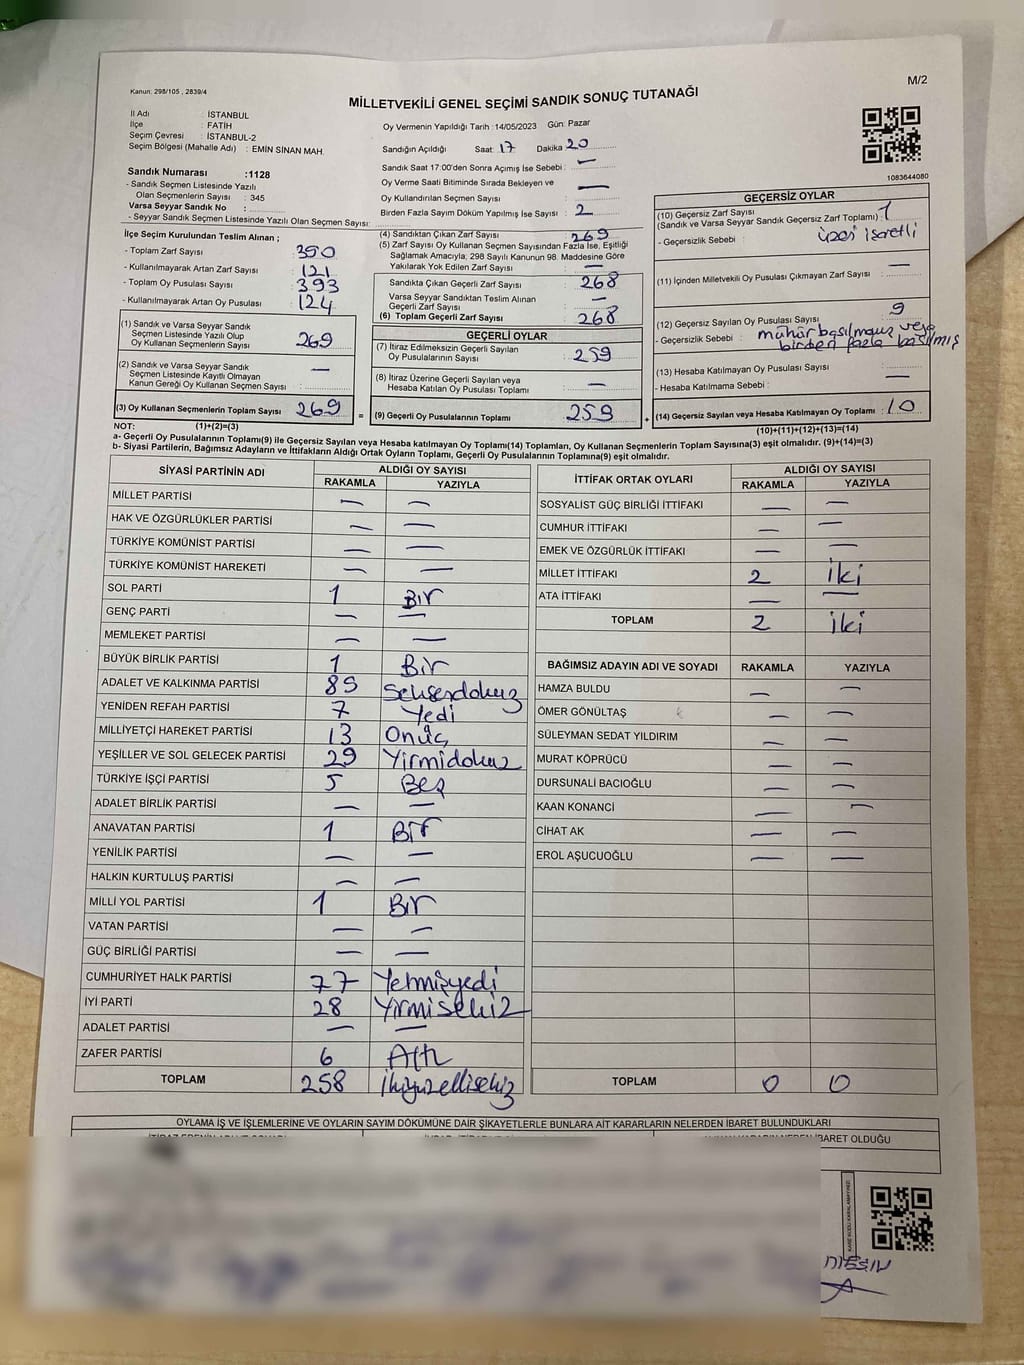 Kanun: 298/105 , 2839/4
M/2
MİLLETVEKİLİ GENEL SEÇİMİ SANDIK SONUÇ TUTANAĞI
İl Adı : İSTANBUL
İlçe : FATİH
Seçim Çevresi : İSTANBUL-2
Seçim Bölgesi (Mahalle Adı) : EMİN SİNAN MAH.
Sandık Numarası :1128
- Sandık Seçmen Listesinde Yazılı
Olan Seçmenlerin Sayısı : 345
Varsa Seyyar Sandık No :
- Seyyar Sandık Seçmen Listesinde Yazılı Olan Seçmen Sayısı:
Oy Vermenin Yapıldığı Tarih : 14/05/2023 Gün: Pazar
Sandığın Açıldığı Saat: 17 Dakika 20
Sandık Saat 17:00'den Sonra Açımış İse Sebebi : —
Oy Verme Saati Bitiminde Sırada Bekleyen ve
Oy Kullandırılan Seçmen Sayısı : —
Birden Fazla Sayım Döküm Yapılmış İse Sayısı : 2
1083644080
İlçe Seçim Kurulundan Teslim Alınan ;
- Toplam Zarf Sayısı : 390
- Kullanılmayarak Artan Zarf Sayısı : 121
- Toplam Oy Pusulası Sayısı : 393
- Kullanılmayarak Artan Oy Pusulası : 124
(1) Sandık ve Varsa Seyyar Sandık
Seçmen Listesinde Yazılı Olup
Oy Kullanan Seçmenlerin Sayısı : 269
(2) Sandık ve Varsa Seyyar Sandık
Seçmen Listesinde Kayıtlı Olmayan
Kanun Gereği Oy Kullanan Seçmen Sayısı : —
(3) Oy Kullanan Seçmenlerin Toplam Sayısı : 269 =
(4) Sandıktan Çıkan Zarf Sayısı : 269
(5) Zarf Sayısı Oy Kullanan Seçmen Sayısından Fazla İse, Eşitliği
Sağlamak Amacıyla, 298 Sayılı Kanunun 98. Maddesine Göre
Yakılarak Yok Edilen Zarf Sayısı : —
Sandıkta Çıkan Geçerli Zarf Sayısı : 268
Varsa Seyyar Sandıktan Teslim Alınan
Geçerli Zarf Sayısı : —
(6) Toplam Geçerli Zarf Sayısı : 268
GEÇERLİ OYLAR
(7) İtiraz Edilmeksizin Geçerli Sayılan
Oy Pusulalarının Sayısı : 259
(8) İtiraz Üzerine Geçerli Sayılan veya
Hesaba Katılan Oy Pusulası Toplamı : —
(9) Geçerli Oy Pusulalarının Toplamı : 259 +
GEÇERSİZ OYLAR
(10) Geçersiz Zarf Sayısı
(Sandık ve Varsa Seyyar Sandık Geçersiz Zarf Toplamı) : 1
- Geçersizlik Sebebi : üzeri işaretli
(11) İçinden Milletvekili Oy Pusulası Çıkmayan Zarf Sayısı : —
(12) Geçersiz Sayılan Oy Pusulası Sayısı : 9
- Geçersizlik Sebebi : mühür basılmamış veya
birden fazla basılmış
(13) Hesaba Katılmayan Oy Pusulası Sayısı : —
- Hesaba Katılmama Sebebi :
(14) Geçersiz Sayılan veya Hesaba Katılmayan Oy Toplamı : 10
NOT: (1)+(2)=(3) (10)+(11)+(12)+(13)=(14)
a- Geçerli Oy Pusulalarının Toplamı(9) ile Geçersiz Sayılan veya Hesaba katılmayan Oy Toplamı(14) Toplamları, Oy Kullanan Seçmenlerin Toplam Sayısına(3) eşit olmalıdır. (9)+(14)=(3)
b- Siyasi Partilerin, Bağımsız Adayların ve İttifakların Aldığı Ortak Oyların Toplamı, Geçerli Oy Pusulalarının Toplamına(9) eşit olmalıdır.
SİYASİ PARTİNİN ADI ALDIĞI OY SAYISI
RAKAMLA YAZIYLA
MİLLET PARTİSİ — —
HAK VE ÖZGÜRLÜKLER PARTİSİ — —
TÜRKİYE KOMÜNİST PARTİSİ — —
TÜRKİYE KOMÜNİST HAREKETİ — —
SOL PARTİ 1 Bir
GENÇ PARTİ — —
MEMLEKET PARTİSİ — —
BÜYÜK BİRLİK PARTİSİ 1 Bir
ADALET VE KALKINMA PARTİSİ 89 Seksendokuz
YENİDEN REFAH PARTİSİ 7 Yedi
MİLLİYETÇİ HAREKET PARTİSİ 13 Onüç
YEŞİLLER VE SOL GELECEK PARTİSİ 29 Yirmidokuz
TÜRKİYE İŞÇİ PARTİSİ 5 Beş
ADALET BİRLİK PARTİSİ — —
ANAVATAN PARTİSİ 1 Bir
YENİLİK PARTİSİ — —
HALKIN KURTULUŞ PARTİSİ — —
MİLLİ YOL PARTİSİ 1 Bir
VATAN PARTİSİ — —
GÜÇ BİRLİĞİ PARTİSİ — —
CUMHURİYET HALK PARTİSİ 77 Yetmişyedi
İYİ PARTİ 28 Yirmisekiz
ADALET PARTİSİ — —
ZAFER PARTİSİ 6 Altı
TOPLAM 258 İkiyüzellisekiz
İTTİFAK ORTAK OYLARI ALDIĞI OY SAYISI
RAKAMLA YAZIYLA
SOSYALİST GÜÇ BİRLİĞİ İTTİFAKI — —
CUMHUR İTTİFAKI — —
EMEK VE ÖZGÜRLÜK İTTİFAKI — —
MİLLET İTTİFAKI 2 İki
ATA İTTİFAKI — —
TOPLAM 2 İki
BAĞIMSIZ ADAYIN ADI VE SOYADI RAKAMLA YAZIYLA
HAMZA BULDU — —
ÖMER GÖNÜLTAŞ — —
SÜLEYMAN SEDAT YILDIRIM — —
MURAT KÖPRÜCÜ — —
DURSUNALİ BACIOĞLU — —
KAAN KONANCİ — —
CİHAT AK — —
EROL AŞUCUOĞLU — —
TOPLAM 0 0
OYLAMA İŞ VE İŞLEMLERİNE VE OYLARIN SAYIM DÖKÜMÜNE DAİR ŞİKAYETLERLE BUNLARA AİT KARARLARIN NELERDEN İBARET BULUNDUKLARI
İBARET OLDUĞU